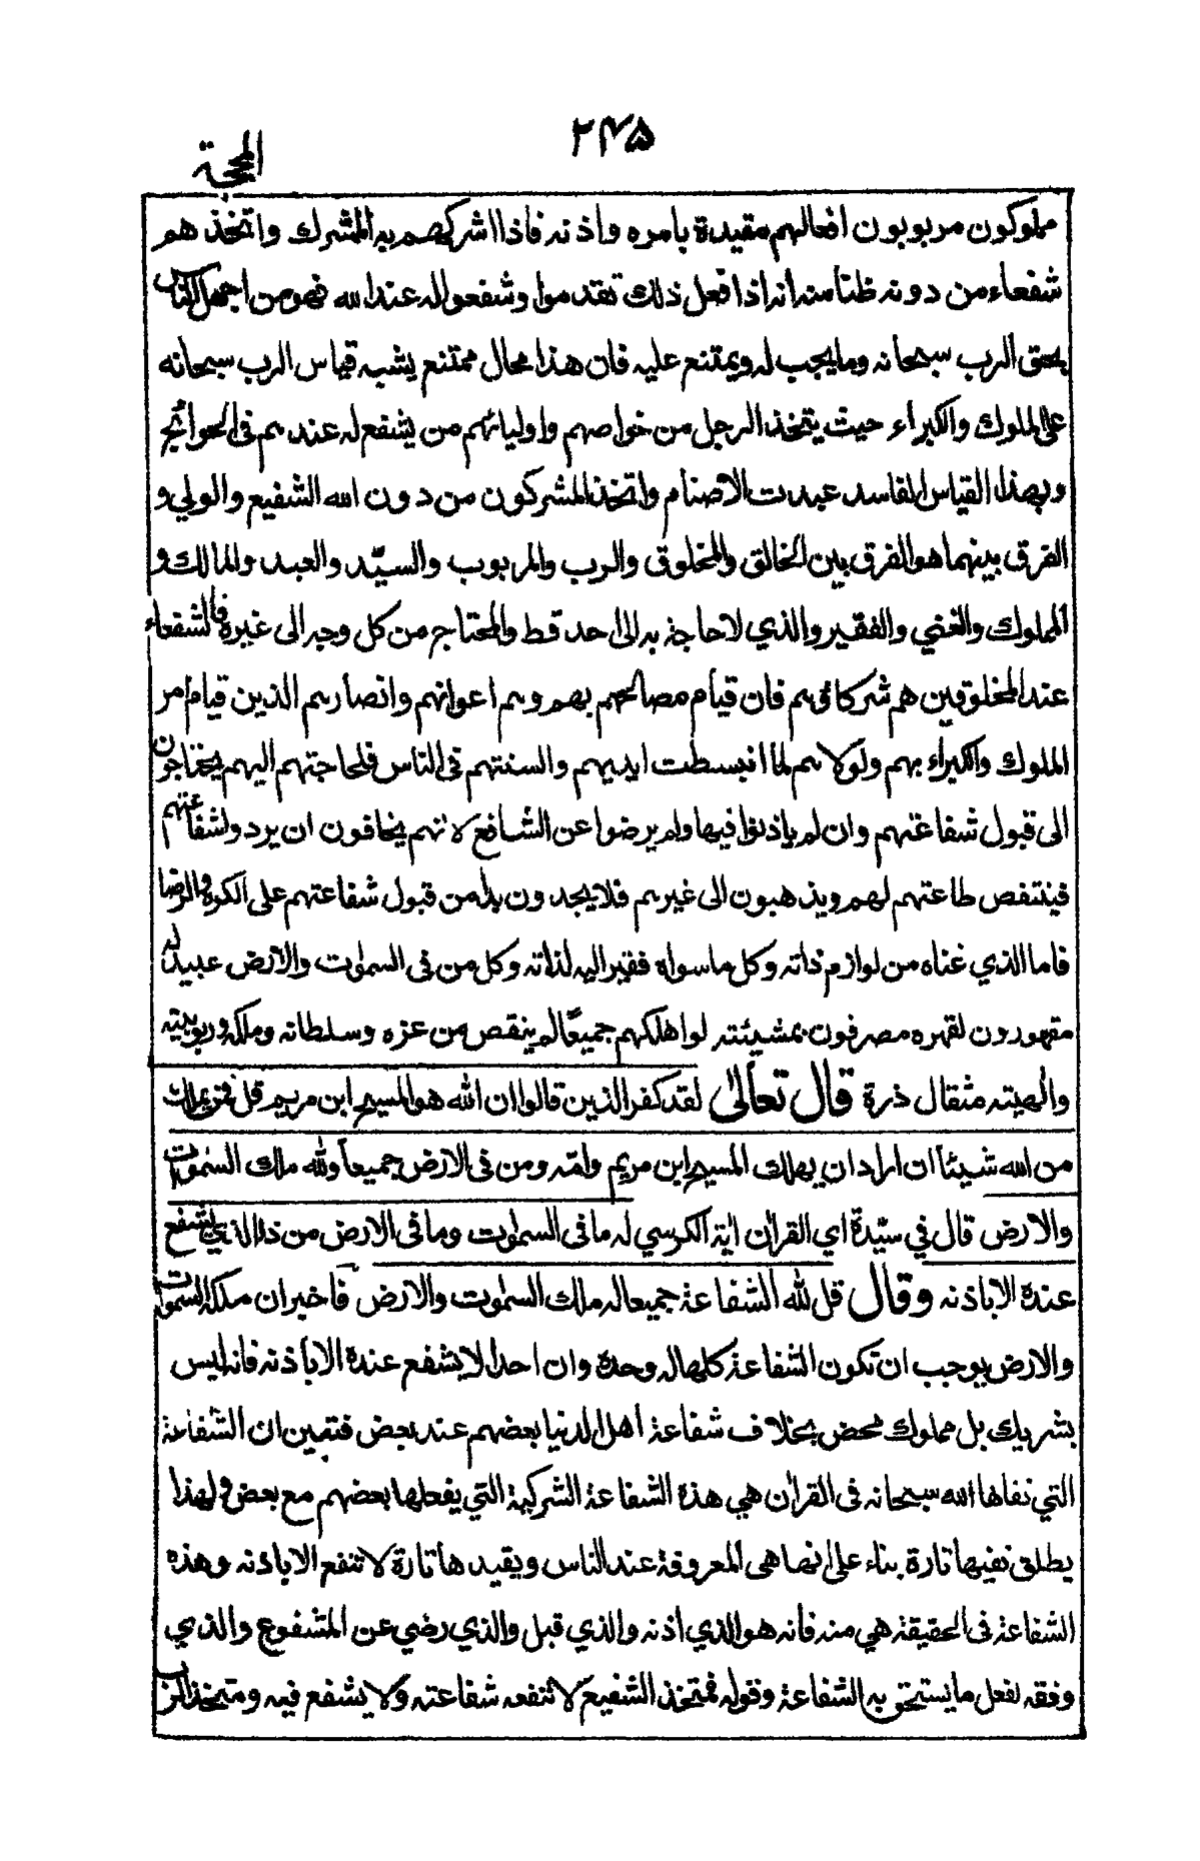 ٢٤٥
المحجة
مملوكون مربوبون افعالهم مقيدة بامره واذنه فاذا اشركهم به المشرك واتخذهم
شفعاء من دونه ظنا منه انه اذا فعل ذلك تقدموا وشفعوا له عند الله فهو من اجهل الناس
بحق الرب سبحانه وما يجب له ويمتنع عليه فان هذا محال ممتنع يشبه قياس الرب سبحانه
على الملوك والكبراء حيث يتخذ الرجل من خواصهم واوليائهم من يشفع له عندهم فى الحوائج
وبهذا القياس الفاسد عبدت الاصنام واتخذ المشركون من دون الله الشفيع والولي و
الفرق بينهما هو الفرق بين الخالق والمخلوق والرب والمربوب والسيّد والعبد والمالك و
المملوك والغني والفقير والذي لا حاجة به الى احد قط والمحتاج من كل وجه الى غيره فالشفعاء
عند المخلوقين هم شركاؤهم فان قيام مصالحهم بهم وهم اعوانهم وانصارهم الذين قيام امر
الملوك والكبراء بهم ولولاهم لما انبسطت ايديهم والسنتهم فى الناس فلحاجتهم اليهم يحتاجون
الى قبول شفاعتهم وان لم ياذنوا فيها ولم يرضوا عن الشافع لانهم يخافون ان يردوا شفاعتهم
فينتقص طاعتهم لهم ويذهبون الى غيرهم فلا يجدون بدا من قبول شفاعتهم على الكره والرضا
فاما الذي غناه من لوازم ذاته وكل ما سواه فقير اليه لذاته وكل من فى السمٰوت والارض عبيد له
مقهورون لقهره مصرفون بمشيئته لو اهلكهم جميعًا لم ينقص من عزه وسلطانه وملكه وربوبيته
والٰهيته مثقال ذرة قال تعالىٰ لقد كفر الذين قالوا ان الله هو المسيح ابن مريم قل فمن يملك
من الله شيئا ان اراد ان يهلك المسيح ابن مريم وامه ومن فى الارض جميعا ولله ملك السمٰوت
والارض قال في سيّدة اي القرآن اية الكرسي له ما فى السمٰوت وما فى الارض من ذا الذي يشفع
عنده الا باذنه وقال قل لله الشفاعة جميعا له ملك السمٰوت والارض فاخبر ان ملكه السمٰوت
والارض يوجب ان تكون الشفاعة كلها له وحده وان احدا لا يشفع عنده الا باذنه فانه ليس
بشريك بل مملوك محض بخلاف شفاعة اهل الدنيا بعضهم عند بعض فتبين ان الشفاعة
التي نفاها الله سبحانه فى القرآن هي هذه الشفاعة الشركية التي يفعلها بعضهم مع بعض ولهذا
يطلق نفيها تارة بناء على انها هى المعروفة عند الناس ويقيدها تارة لا تنفع الا باذنه وهذه
الشفاعة فى الحقيقة هي منه فانه هو الذي اذنه والذي قبل والذي رضي عن المشفوع والذي
وفقه لفعل ما يستحق به الشفاعة وقوله فمتخذ الشفيع لا تنفعه شفاعته ولا يشفع فيه ومتخذ الرب